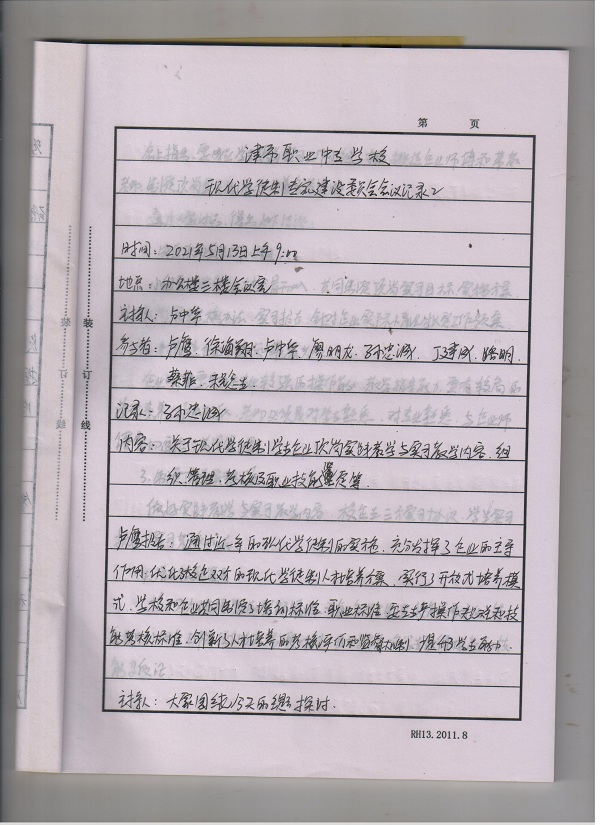 第 页
津市职业中专学校
现代学徒制专家建设委员会会议记录2
时间：2021年5月13日上午9:00
地点：办公楼三楼会议室
主持人：卢中华
参与者：卢鹰、徐海翔、卢中华、廖明龙、孙忠诚、丁建成、
蔡菲、
记录：孙忠诚
内容：关于现代学徒制学生企业顶岗实践教学与实习教学内容、组
织、管理、考核及职业技能鉴定等.
卢鹰报告：通过近一年的现代学徒制的实施，充分发挥了企业的主导
作用，优化了校企双方的现代学徒制人才培养方案，实行了开放式培养模
式，学校和企业共同制定了培训标准、职业标准、安全生产操作规程和技
能考核标准，创新了人才培养的考核评价和监督机制，提升学生能力.
主持人：大家围绕今天的议题探讨.
RH13.2011.8
装
订
线